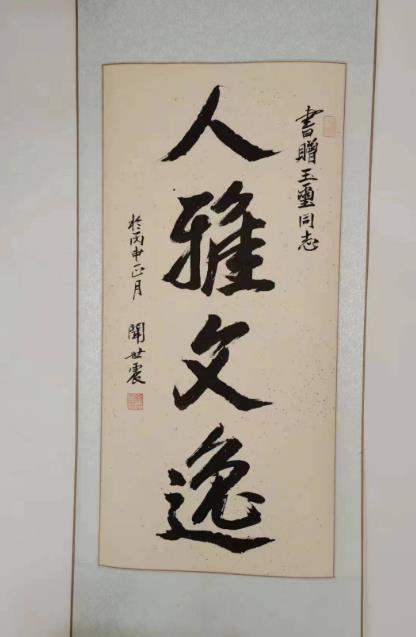 書贈玉璽同志
人雅文逸
於丙申正月
聞世震